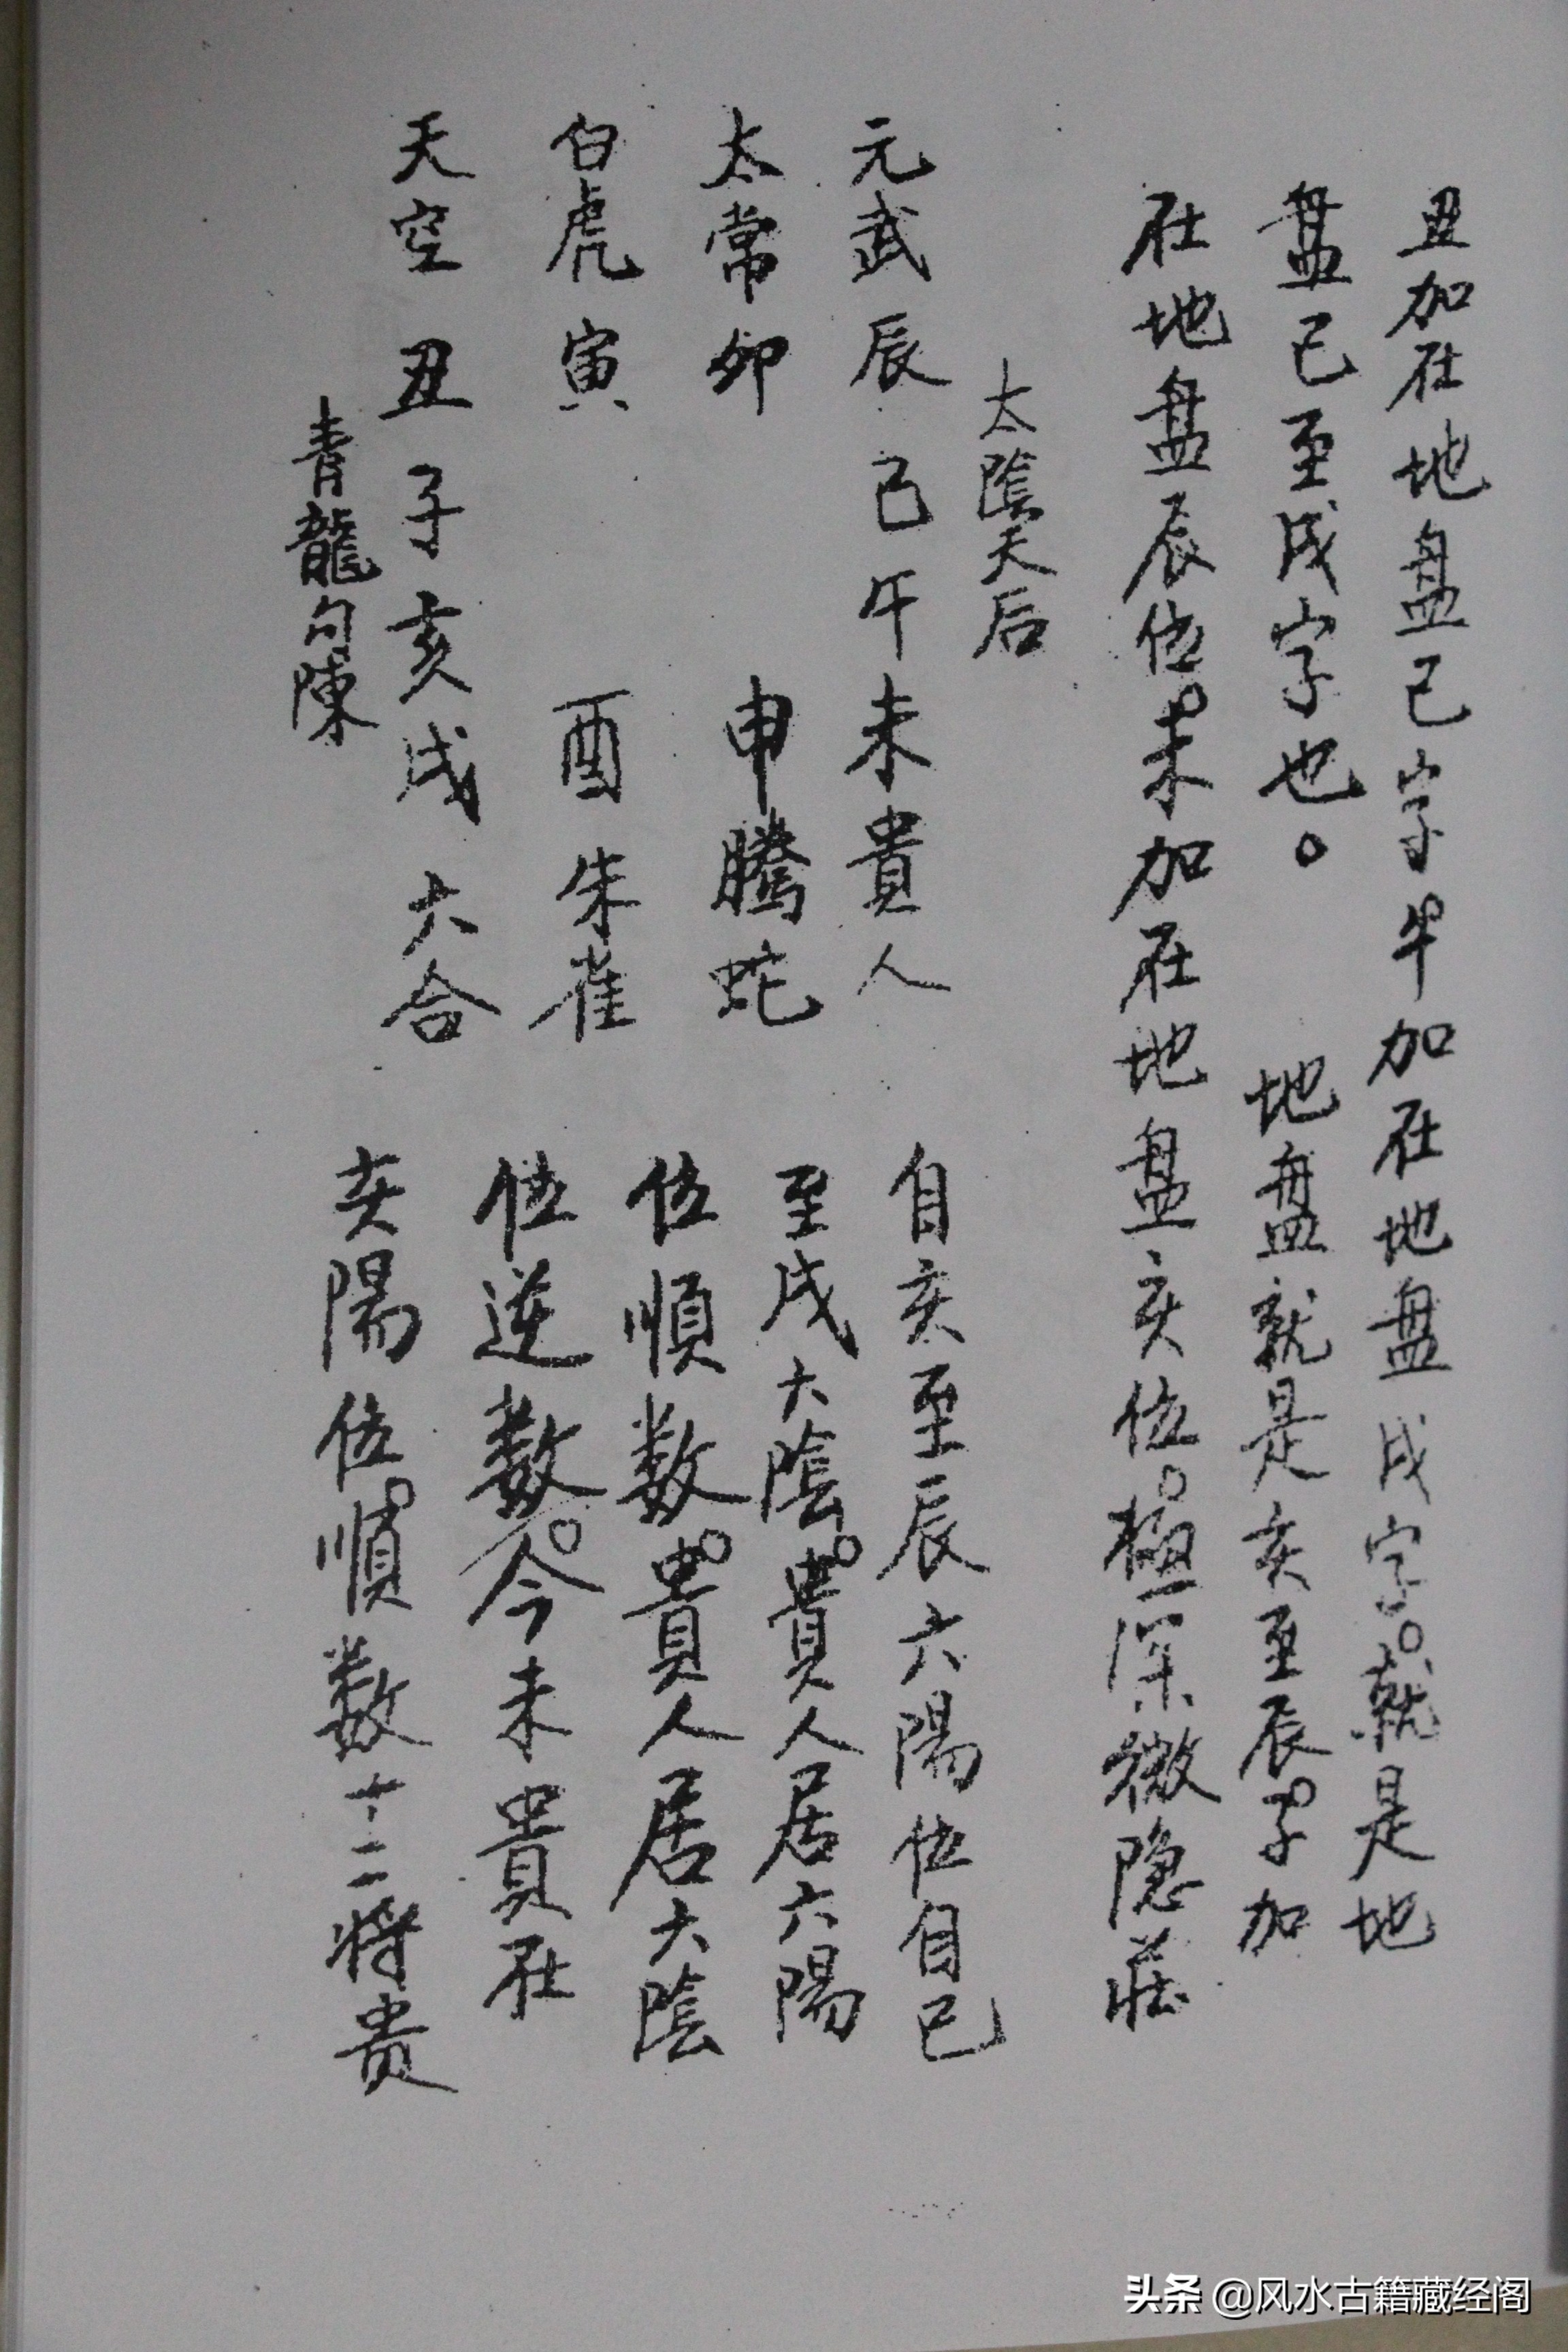 丑加在地盘己字午加在地盘戌字。就是地
盘己至戌字也。 地盘就是亥至辰。子加
在地盘辰位。未加在地盘亥位。極深微隐莊
太陰天后
元武 辰 己 午 未 貴人
太常 卯 申 騰蛇
白虎 寅 酉 朱雀
天空 丑 子 亥 戌 六合
青龍 勾陳
自亥至辰六陽位自己
至戌六陰。貴人居六陽
位順数。貴人居六陰
位逆数。今未貴在
亥陽位。順数十二将贵
头条 @风水古籍藏经阁